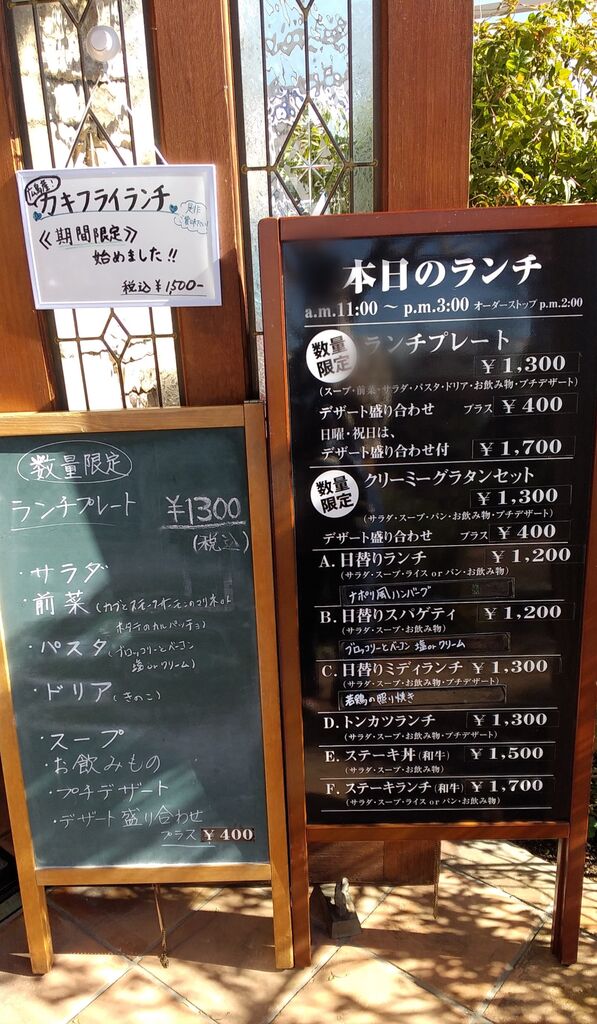 広島産
カキフライランチ
是非
ご賞味下さい!
≪期間限定≫
始めました!!
税込¥1,500-
数量限定
ランチプレート ¥1300
(税込)
・サラダ
・前菜(カブとスモークサーモンのマリネ or
ホタテのカルパッチョ)
・パスタ(ブロッコリーとベーコン
塩orクリーム)
・ドリア(きのこ)
・スープ
・お飲みもの
・プチデザート
・デザート盛り合わせ
プラス ¥400
本日のランチ
a.m.11:00 ~ p.m.3:00 オーダーストップ p.m.2:00
数量
限定
ランチプレート
¥1,300
(スープ・前菜・サラダ・パスタ・ドリア・お飲み物・プチデザート)
デザート盛り合わせ プラス ¥400
日曜・祝日は、
デザート盛り合わせ付 ¥1,700
数量
限定
クリーミーグラタンセット
¥1,300
(サラダ・スープ・パン・お飲み物・プチデザート)
デザート盛り合わせ プラス ¥400
A. 日替りランチ ¥1,200
(サラダ・スープ・ライス or パン・お飲み物)
ナポリ風ハンバーグ
B. 日替りスパゲティ ¥1,200
(サラダ・スープ・お飲み物)
ブロッコリーとベーコン 塩orクリーム
C. 日替りミディランチ ¥1,300
(サラダ・スープ・お飲み物・プチデザート)
若鶏の照り焼き
D. トンカツランチ ¥1,300
(サラダ・スープ・お飲み物・プチデザート)
E. ステーキ丼(和牛) ¥1,500
(サラダ・スープ・お飲み物)
F. ステーキランチ(和牛) ¥1,700
(サラダ・スープ・ライス or パン・お飲み物)